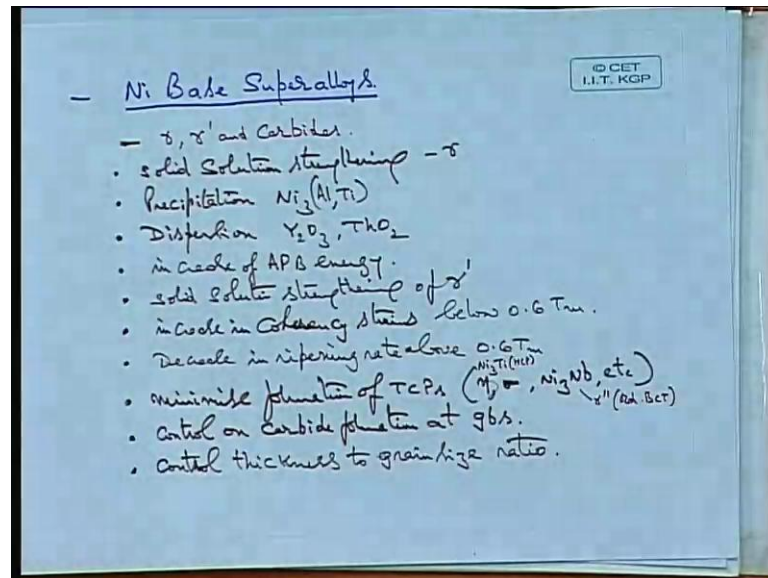 © CET
I.I.T. KGP
– Ni Base Superalloys.
– γ, γ' and Carbides.
• solid Solution strengthening – γ
• Precipitation Ni₃(Al,Ti)
• Dispersion Y₂O₃, ThO₂
• increase of APB energy.
• solid solution strengthening of γ'
• increase in Coherency strains below 0.6 Tm.
• Decrease in ripening rate above 0.6 Tm
Ni₃Ti(HCP)
• minimise formation of TCPs (η, σ, Ni₃Nb, etc)
γ" (Ord. BCT)
• control on carbide formation at gbs.
• control thickness to grain size ratio.